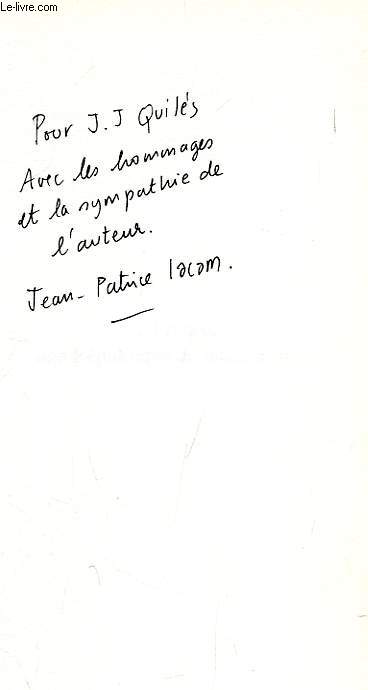 Le-livre.com
Pour J.J Quilés
Avec les hommages
et la sympathie de
l'auteur.
Jean-Patrice